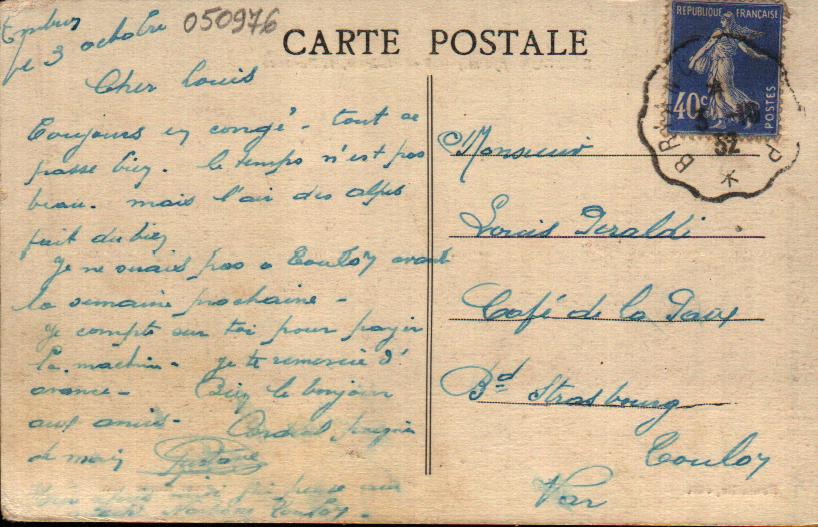 Embrun
le 3 octobre
050976
CARTE POSTALE
REPUBLIQUE FRANÇAISE
40c
POSTES
BRIANÇ
32
Cher Louis
Toujours en congé - tout se
passe bien. le temps n'est pas
beau. mais l'air des alpes
fait du bien
Je ne serais pas a Toulon avant
la semaine prochaine -
Je compte sur toi pour payer
la machine - je te remercie d'
avance - Bien le bonjour
aux amis - Cordial poignée
de main Gustave
Toulon -
Monsieur
Louis Peraldi
Café de la Paix
Bd Strasbourg
Toulon
Var